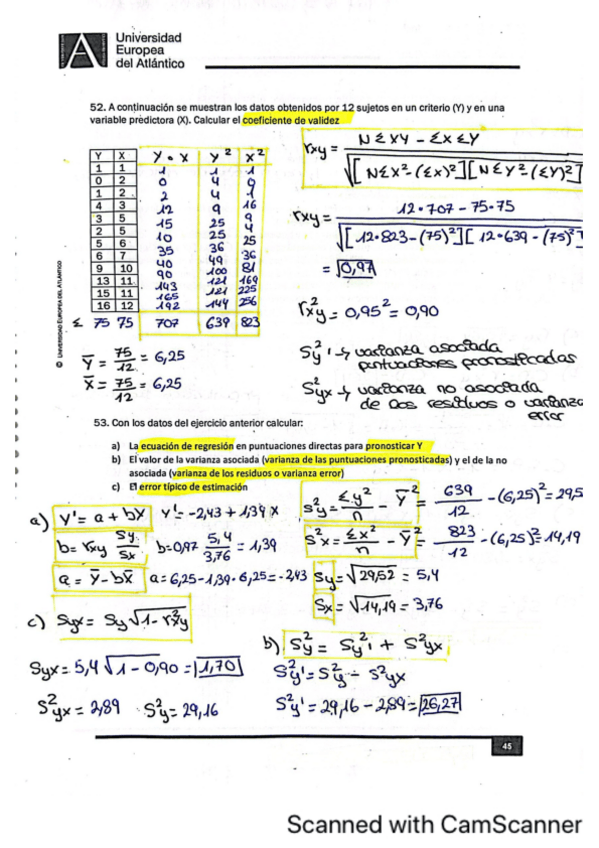 Universidad
Europea
del Atlántico
52. A continuación se muestran los datos obtenidos por 12 sujetos en un criterio (Y) y en una
variable predictora (X). Calcular el coeficiente de validez
rxy = NΣXY - ΣXΣY / √[NΣX²-(Σx)²][NΣY²-(ΣY)²]
Y X Y·X Y² X²
1 1 1 1 1
0 2 0 4 0
1 2 2 4 1
4 3 12 9 16
3 5 15 25 9
2 5 10 25 4
5 6 35 36 25
6 7 40 49 36
9 10 90 100 81
13 11 143 121 169
15 11 165 121 225
16 12 192 144 256
Σ 75 75 707 639 823
rxy = 12·707 - 75·75 / √[12·823-(75)²][12·639-(75)²]
= √0,97
r²xy = 0,95² = 0,90
© UNIVERSIDAD EUROPEA DEL ATLÁNTICO
Ȳ = 75/12 = 6,25
X̄ = 75/12 = 6,25
S²y' → varianza asociada
puntuaciones pronosticadas
S²yx → varianza no asociada
de los residuos o varianza
error
53. Con los datos del ejercicio anterior calcular:
a) La ecuación de regresión en puntuaciones directas para pronosticar Y
b) El valor de la varianza asociada (varianza de las puntuaciones pronosticadas) y el de la no
asociada (varianza de los residuos o varianza error)
c) El error típico de estimación
a) Y' = a + bX Y'= -2,43 + 1,39 X
b = rxy Sy/Sx b=0,97 5,4/3,76 = 1,39
a = Ȳ - bX̄ a = 6,25-1,39·6,25 = -2,43
S²y = Σy²/n - Ȳ² = 639/12 - (6,25)² = 29,5
S²x = Σx²/n - Ȳ² = 823/12 - (6,25)² = 14,19
Sy = √29,52 = 5,4
Sx = √14,19 = 3,76
c) Syx = Sy√1 - r²xy
Syx = 5,4 √1 - 0,90 = 1,70
S²yx = 2,89 S²y = 29,16
b) S²y = S²y' + S²yx
S²y' = S²y - S²yx
S²y' = 29,16 - 2,89 = 26,27
45
Scanned with CamScanner